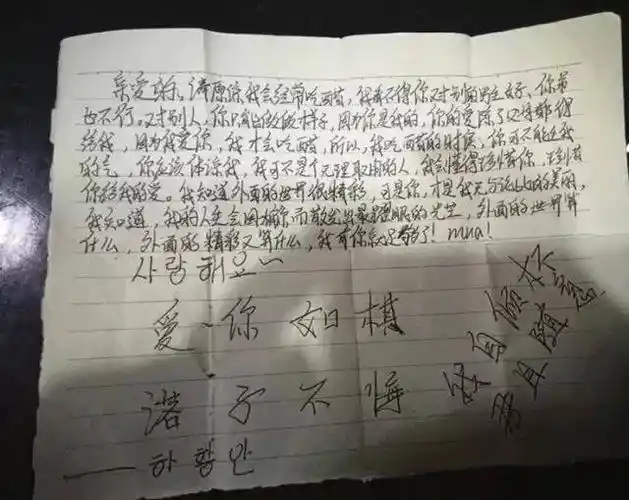 亲爱的,请原谅我会经常吃醋,我看不得你对别的男生好,你弟
也不行。对别人,你只能做做样子,因为你是我的,你的爱除了父母都得
给我,因为我爱你,我才会吃醋,所以,我吃醋的时候,你可不能生我
的气,你应该体谅我,我可不是个无理取闹的人,我会懂得珍惜你,
你给我的爱。我知道外面的世界很精彩,可是你,才是我无与伦比的美丽,
我知道,我的人生会因为你而散发出最耀眼的光芒,外面的世界算
什么,外面的精彩又算什么,我有你就足够了!mua!
사랑해요~
爱 你 如 棋
落 子 不 悔
—— 하황안